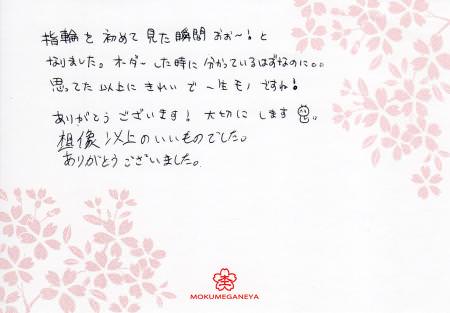 指輪を初めて見た瞬間おぉ~!と
なりました。オーダーした時に分かっているはずなのに。。
思ってた以上にきれいで一生モノですね!
ありがとうございます!大切にします。
想像以上のいいものでした。
ありがとうございました。
MOKUMEGANEYA